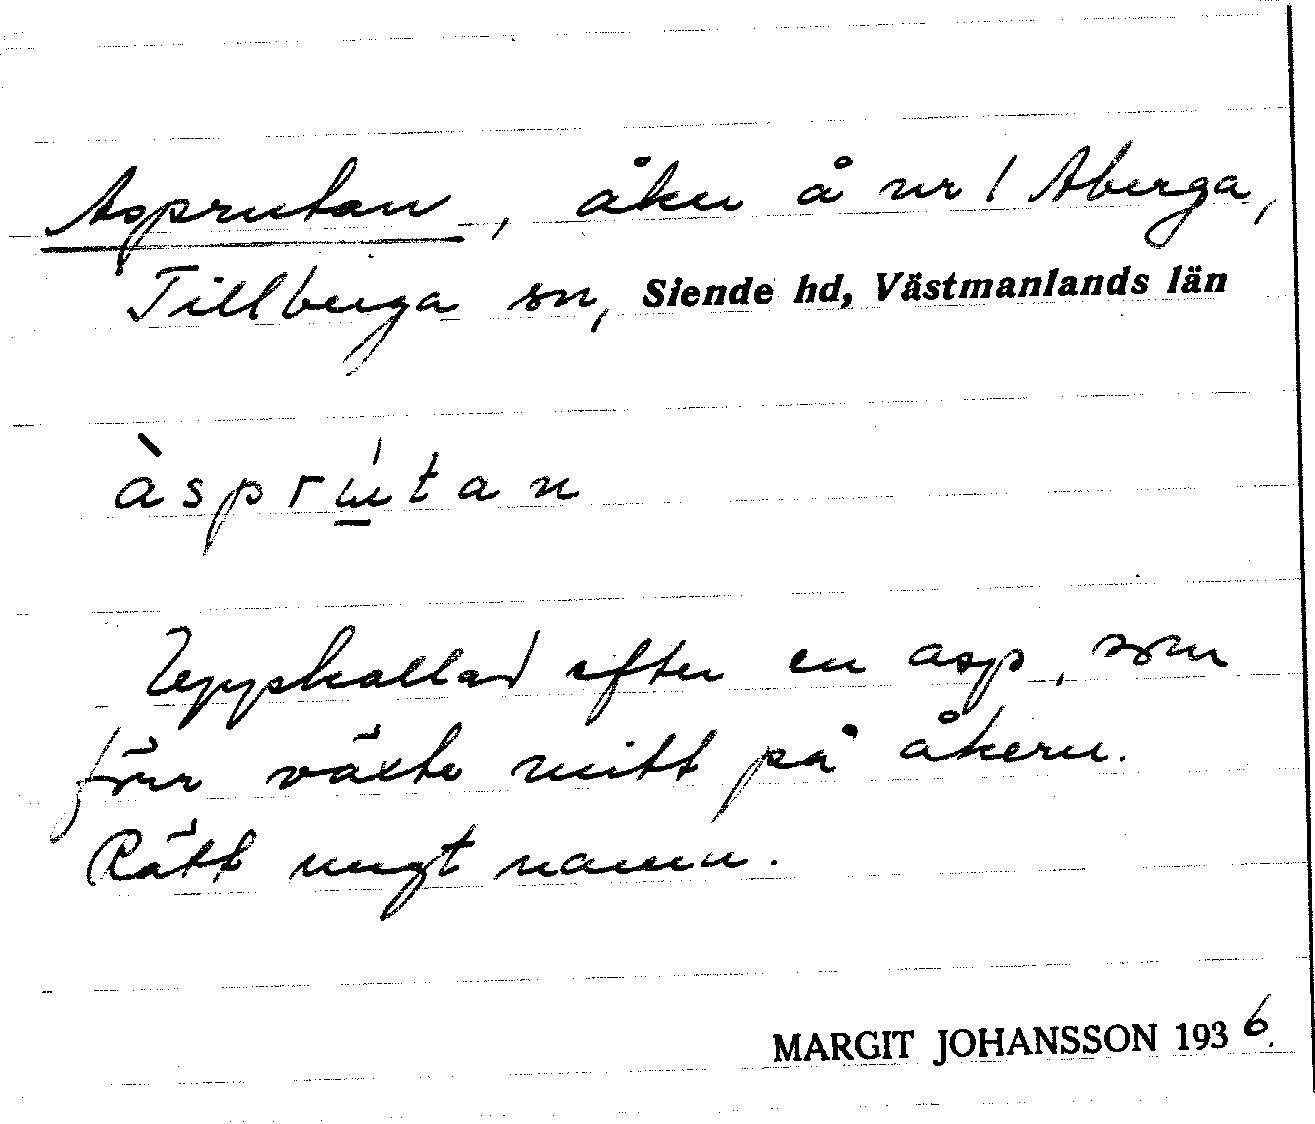 Asprutan, åker å nr 1 Aberga,
Tillberga sn, Siende hd, Västmanlands län
àsprɯ́tan
Uppkallad efter en asp, som
förr växte mitt på åkern.
Rätt ungt namn.
MARGIT JOHANSSON 1936.